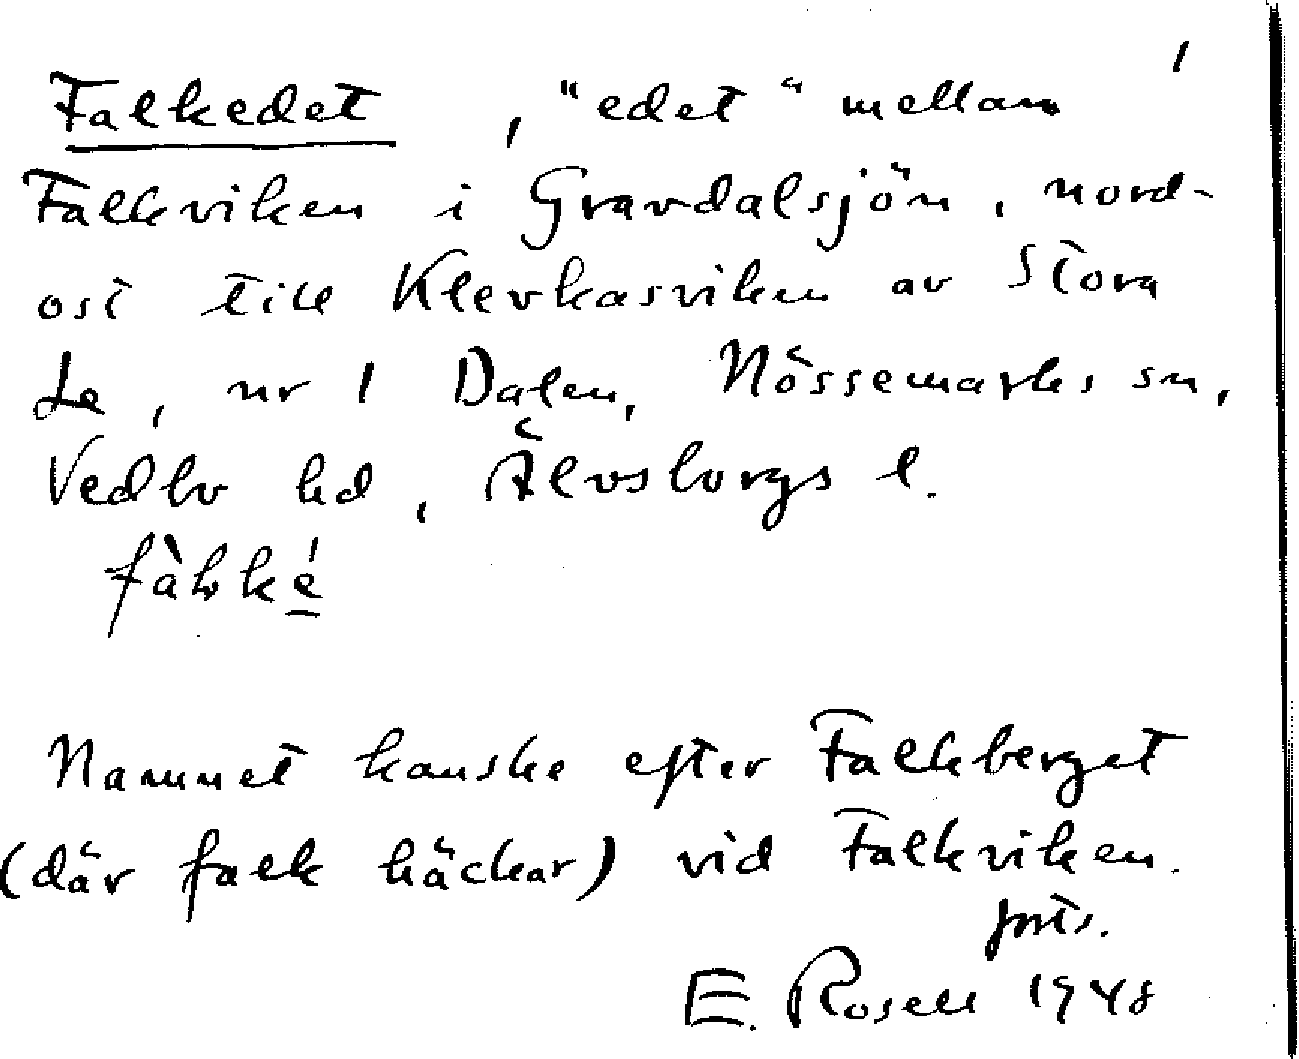 1
Falkedet , "edet" mellan
Falkviken i Gravdalsjön, nord-
ost till Klevkasviken av Stora
Le, nr 1 Dalen, Nössemarks sn,
Vedbo hd, Älvsborgs l.
Namnet kanske efter Falkberget
(där falk häckar) vid Falkviken.
forts.
E. Rosell 1948